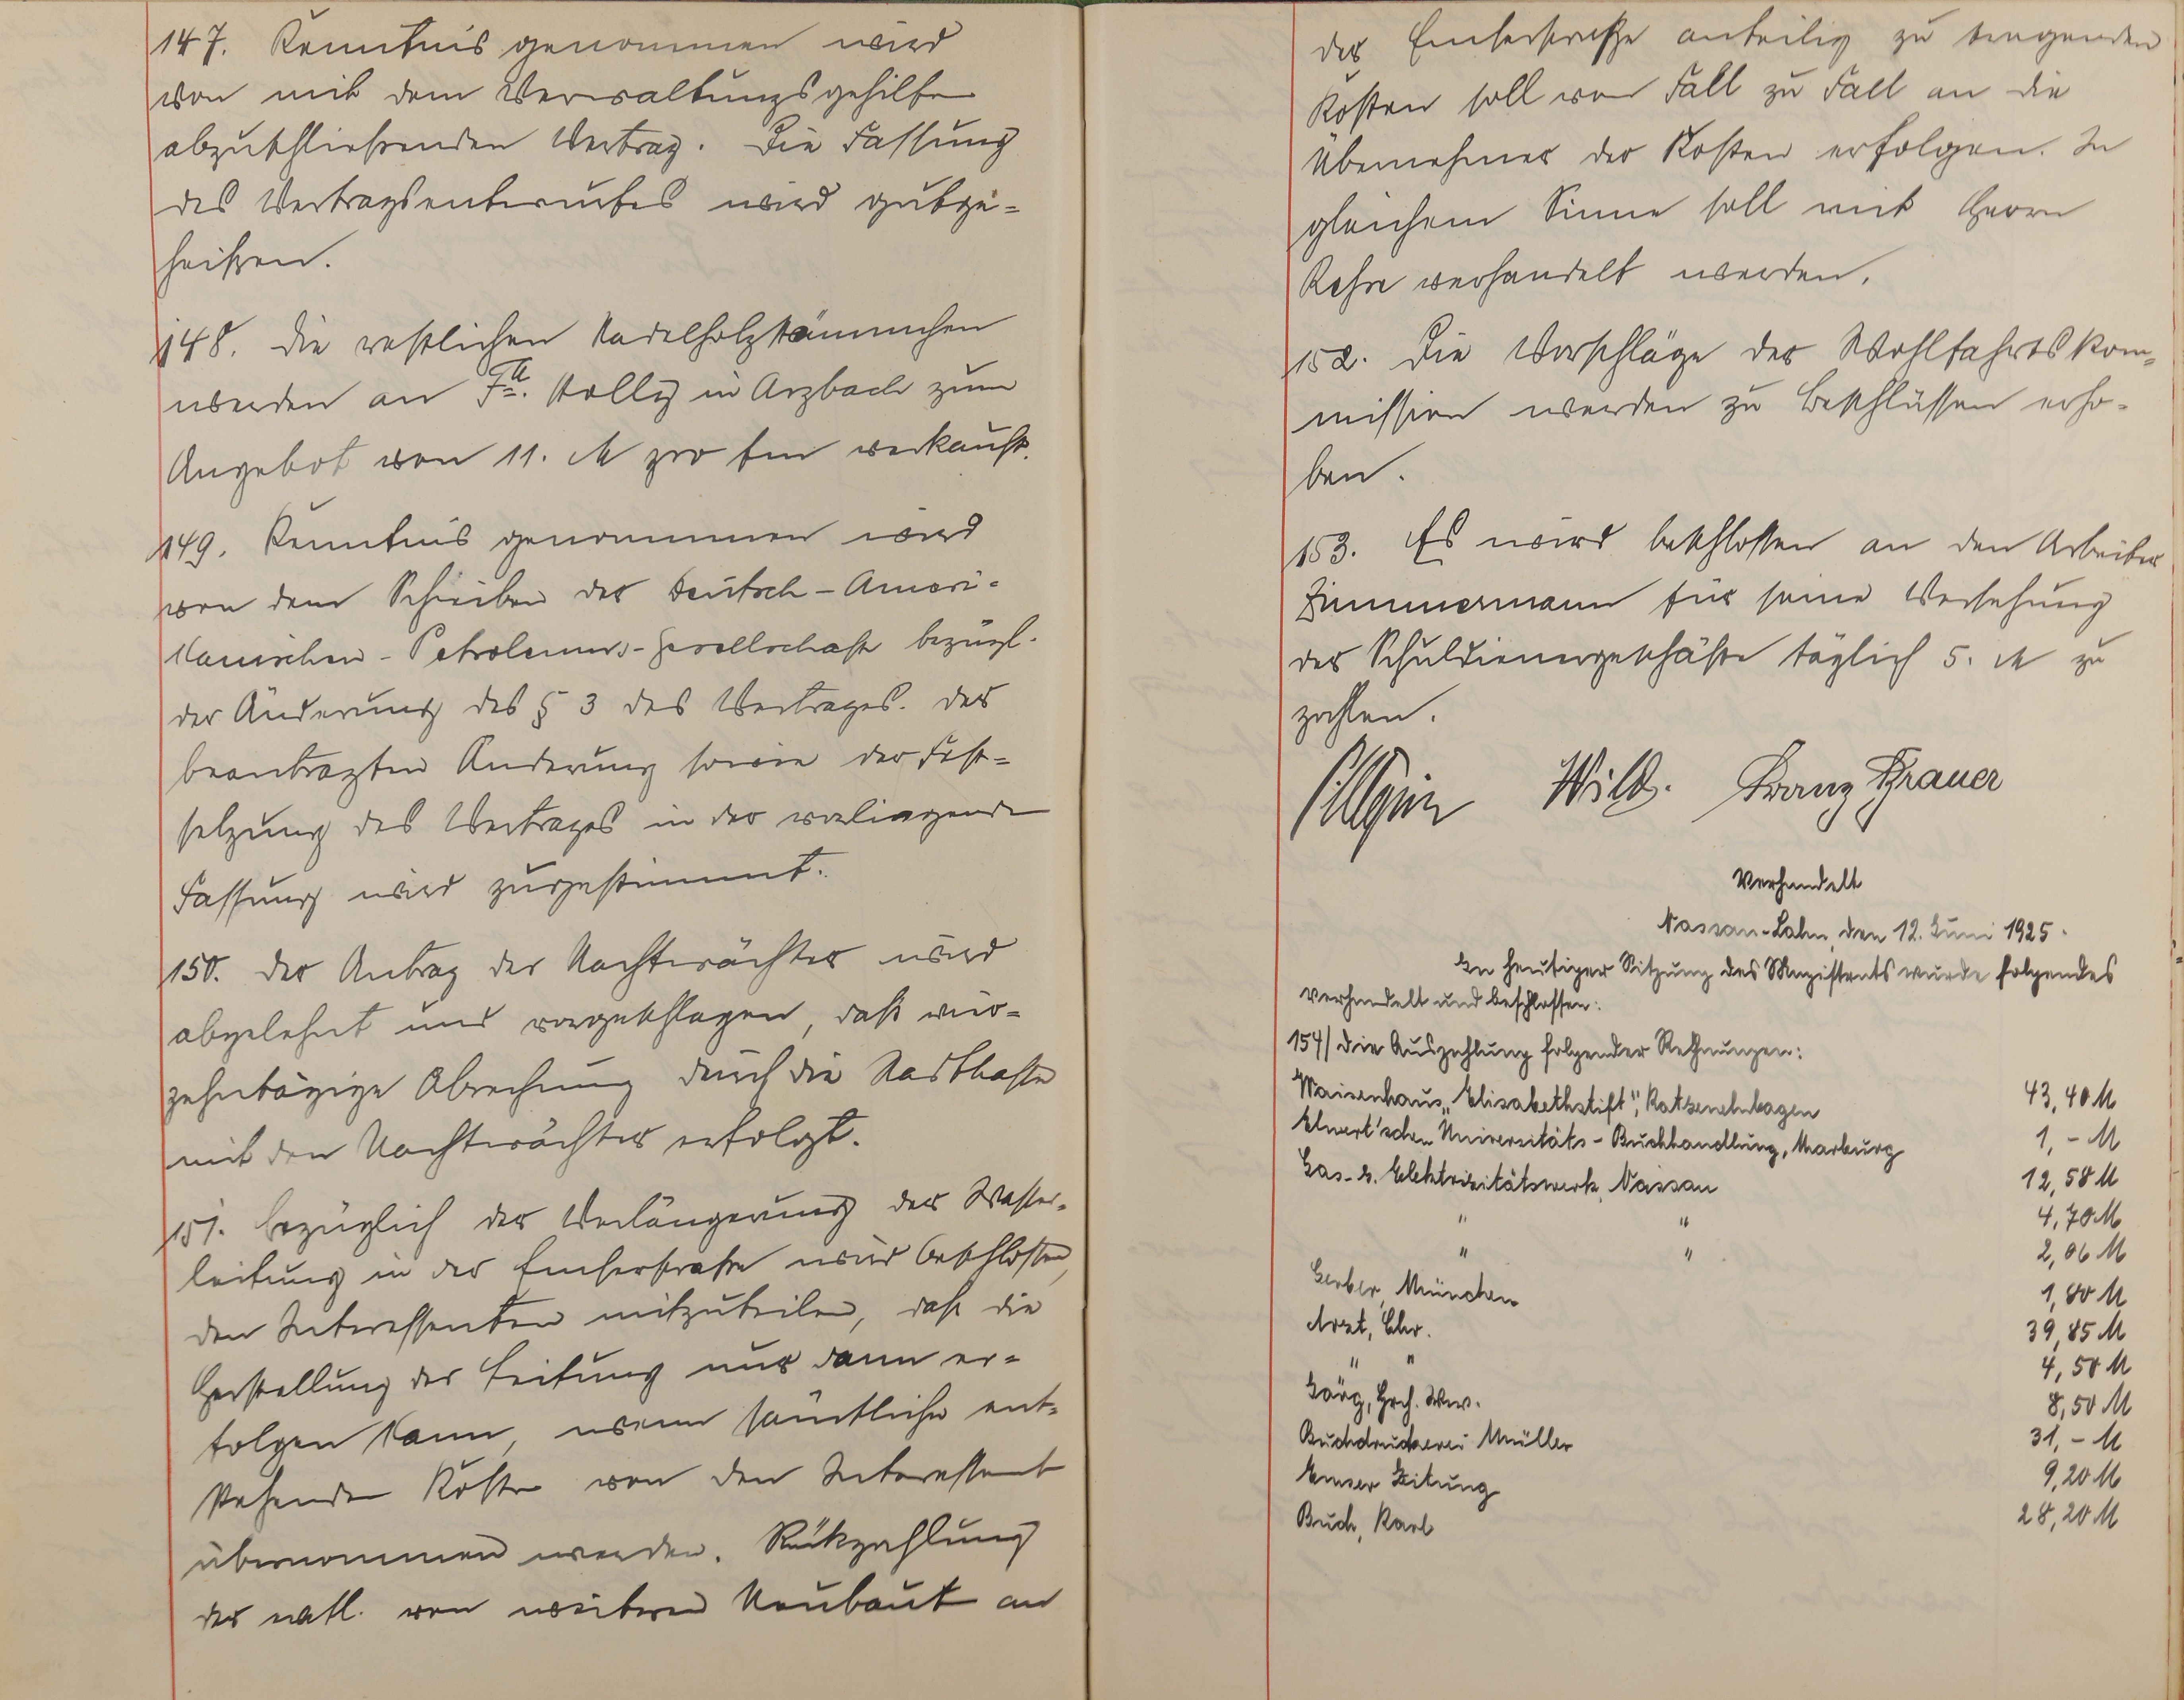 147. Kenntnis genommen wird
von mit dem Verwaltungsgehilfen
abzuschließenden Vertrag. Die Fassung
des Vertragsentwurfes wird gutge-
heißen.
148. Die restlichen Nadelholzstämmchen
werden an Fa. Kolly in Arzbach zum
Angebot von 11. M pro fm verkauft.
149. Kenntnis genommen wird
von dem Schreiben der Deutsch-Ameri-
kanischen-Petroleums-Gesellschaft bezügl.
der Änderung des § 3 des Vertrages. Der
beantragten Änderung sowie der Fest-
setzung des Vertrages in der vorliegenden
Fassung wird zugestimmt.
150. Der Antrag der Nachtwächter wird
abgelehnt und vorgeschlagen, daß vier-
zehntägige Abrechnung durch die Stadtkasse
mit den Nachtwächter erfolgt.
151. Bezüglich der Verlängerung der Wasser-
leitung in der Emserstraße wird beschlossen,
den Interessenten mitzuteilen, daß die
Herstellung der Leitung nur dann er-
folgen kann, wenn sämtliche ent-
stehenden Kosten von den Interessent
übernommen werden. Rückzahlung
der evtl. von weiteren Neubaut an
der Emserstraße anteilig zu tragenden
Kosten soll von Fall zu Fall an die
Übernehmer der Kosten erfolgen. In
gleichem Sinne soll mit Herrn
Rehse verhandelt werden.
152. Die Vorschläge der Wohlfahrtskom-
mission werden zu Beschlüssen erho-
ben.
153. Es wird beschlossen an den Arbeiter
Zimmermann für seine Versehung
der Schuldienergeschäfte täglich 5. M zu
zahlen.
Wild. Franz Brauer
Verhandelt
Nassau-Lahn, den 12. Juni 1925.
In heutiger Sitzung des Magistrats wurde folgendes
verhandelt und beschlossen:
154/ Die Auszahlung folgender Rechnungen:
Waisenhaus „Elisabethstift", Katzenelnbogen 43,40 M
Elwert'sche Universitäts-Buchhandlung, Marburg 1,- M
Gas- u. Elektrizitätswerk, Nassau 12,58 M
" " 4,70 M
" " 2,06 M
Gerber, München 1,80 M
Arzt, Chr. 39,85 M
" " 4,50 M
Görg, Hrch. Ww. 8,50 M
Buchdruckerei Müller 31,- M
Emser Zeitung 9,20 M
Buch, Karl 28,20 M